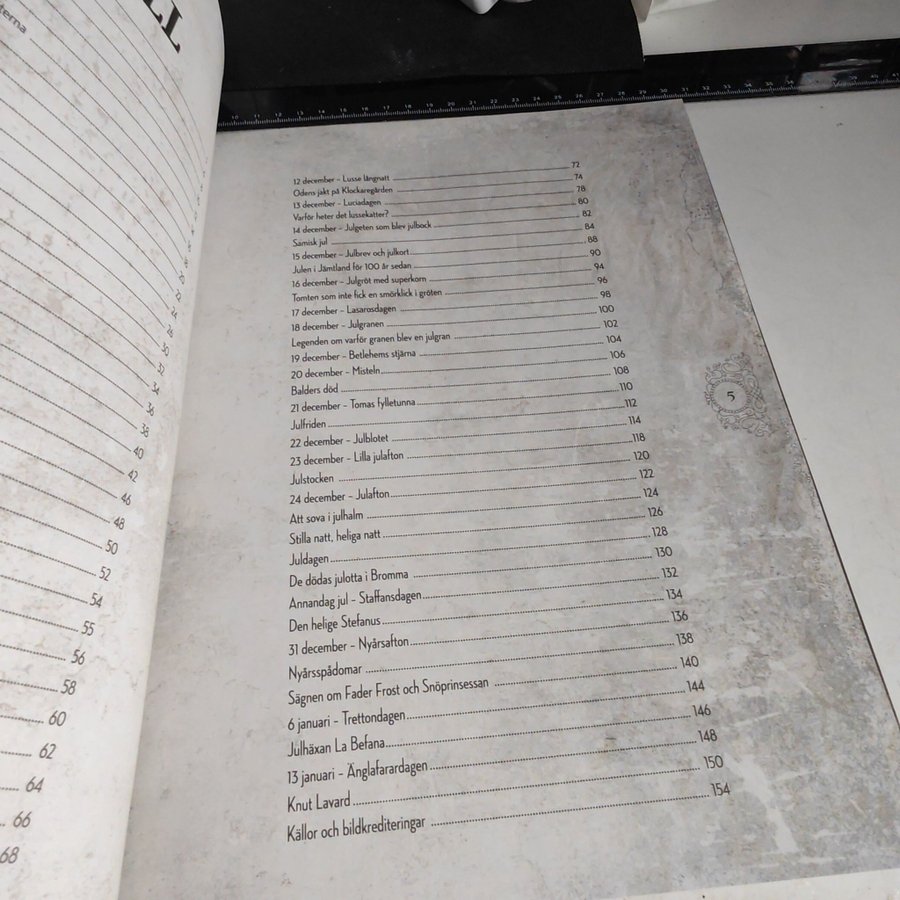 LL
terna
20
22
24
26
30
32
34
36
38
40
42
46
48
50
52
54
55
56
58
60
62
64
66
68
10 11 12 13 14 15 16 17 18 19 20 21 22 23 24 25 26 27 28 29 30 31 32 33 34 35
12 december – Lusse långnatt 72
Odens jakt på Klockaregården 74
13 december – Luciadagen 78
Varför heter det lussekatter? 80
14 december – Julgeten som blev julbock 82
Samisk jul 84
15 december – Julbrev och julkort 88
Julen i Jämtland för 100 år sedan 90
16 december – Julgröt med superkorn 94
Tomten som inte fick en smörklick i gröten 96
17 december – Lasarosdagen 98
18 december – Julgranen 100
Legenden om varför granen blev en julgran 102
19 december – Betlehems stjärna 104
20 december – Misteln 106
Balders död 108
21 december – Tomas fylletunna 110
Julfriden 112
22 december – Julblotet 114
23 december – Lilla julafton 118
Julstocken 120
24 december – Julafton 122
Att sova i julhalm 124
Stilla natt, heliga natt 126
Juldagen 128
De dödas julotta i Bromma 130
Annandag jul – Staffansdagen 132
Den helige Stefanus 134
31 december – Nyårsafton 136
Nyårsspådomar 138
Sägnen om Fader Frost och Snöprinsessan 140
6 januari – Trettondagen 144
Julhäxan La Befana 146
13 januari – Änglafarardagen 148
Knut Lavard 150
Källor och bildkrediteringar 154
5